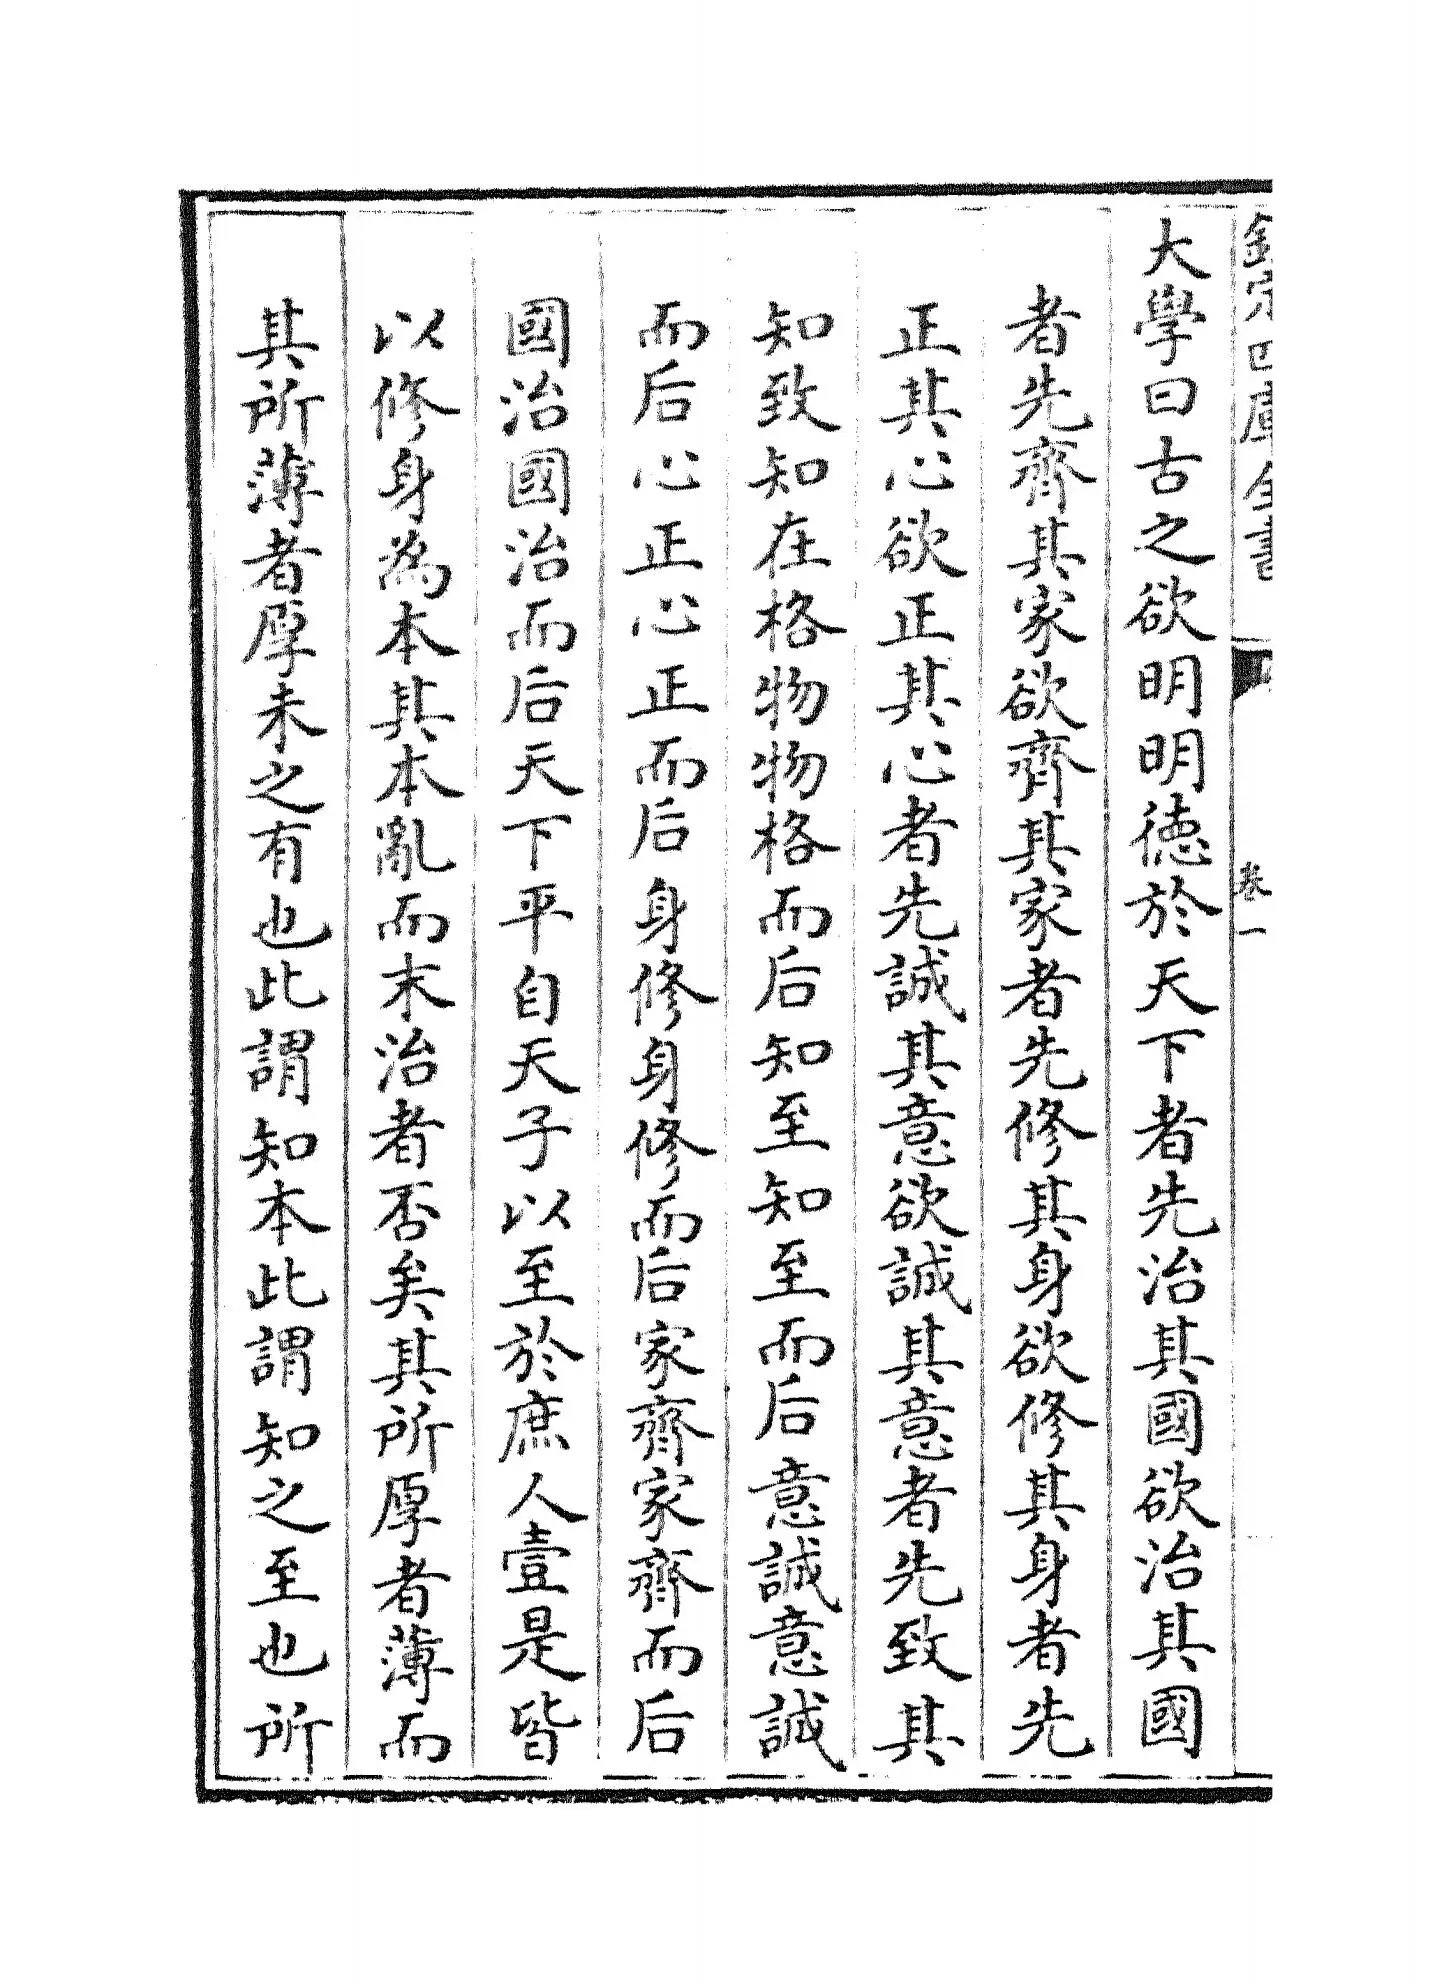 欽定四庫全書
卷一
大學曰古之欲明明德於天下者先治其國欲治其國
者先齊其家欲齊其家者先修其身欲修其身者先
正其心欲正其心者先誠其意欲誠其意者先致其
知致知在格物物格而后知至知至而后意誠意誠
而后心正心正而后身修身修而后家齊家齊而后
國治國治而后天下平自天子以至於庶人壹是皆
以修身為本其本亂而末治者否矣其所厚者薄而
其所薄者厚未之有也此謂知本此謂知之至也所